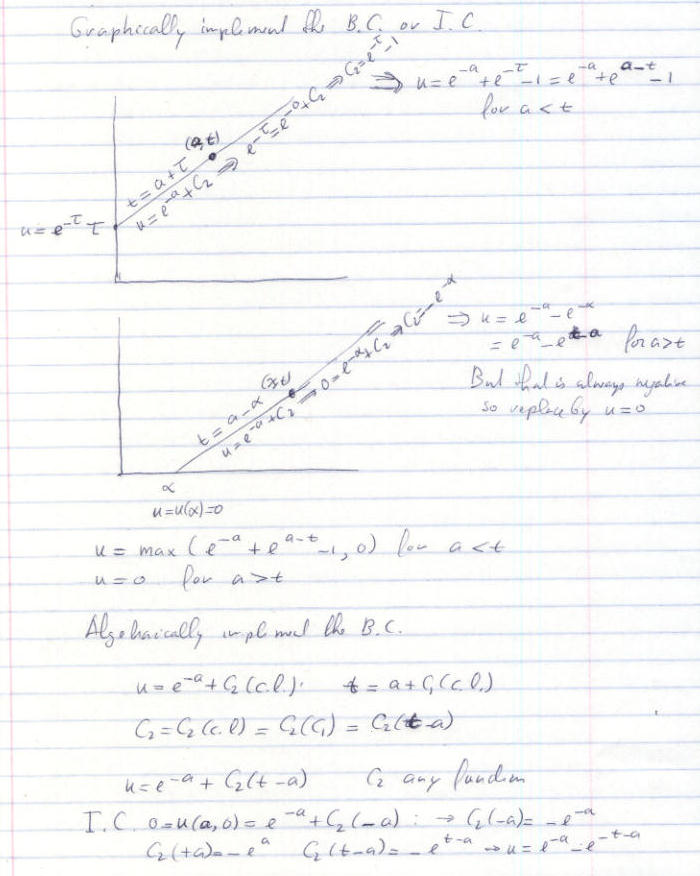 Graphically implement the B.C. or I.C.
⇒ u = e^{-a} + e^{-τ} - 1 = e^{-a} + e^{a-t} - 1
for a < t
(a,t)
t = a + τ
u = e^{-a} + C₂ ⇒ e^{-τ} = e^{-0} + C₂ ⇒ C₂ = e^{-τ} - 1
u = e^{-τ} τ
⇒ u = e^{-a} - e^{-α}
= e^{-a} - e^{t-a} for a>t
But that is always negative
so replace by u = 0
(a,t)
t = a - α
u = e^{-a} + C₂ ⇒ 0 = e^{-α} + C₂ ⇒ C₂ = -e^{-α}
α
u = u(α) = 0
u = max (e^{-a} + e^{a-t} - 1, 0) for a < t
u = 0 for a > t
Algebraically implement the B.C.
u = e^{-a} + C₂ (c.l.). t = a + C₁ (c.l.)
C₂ = C₂(c.l) = C₂(C₁) = C₂(t-a)
u = e^{-a} + C₂(t-a) C₂ any function
I.C. 0 = u(a,0) = e^{-a} + C₂(-a) : → C₂(-a) = -e^{-a}
C₂(+a) = -e^{a} C₂(t-a) = -e^{t-a} ⇒ u = e^{-a} - e^{-t-a}